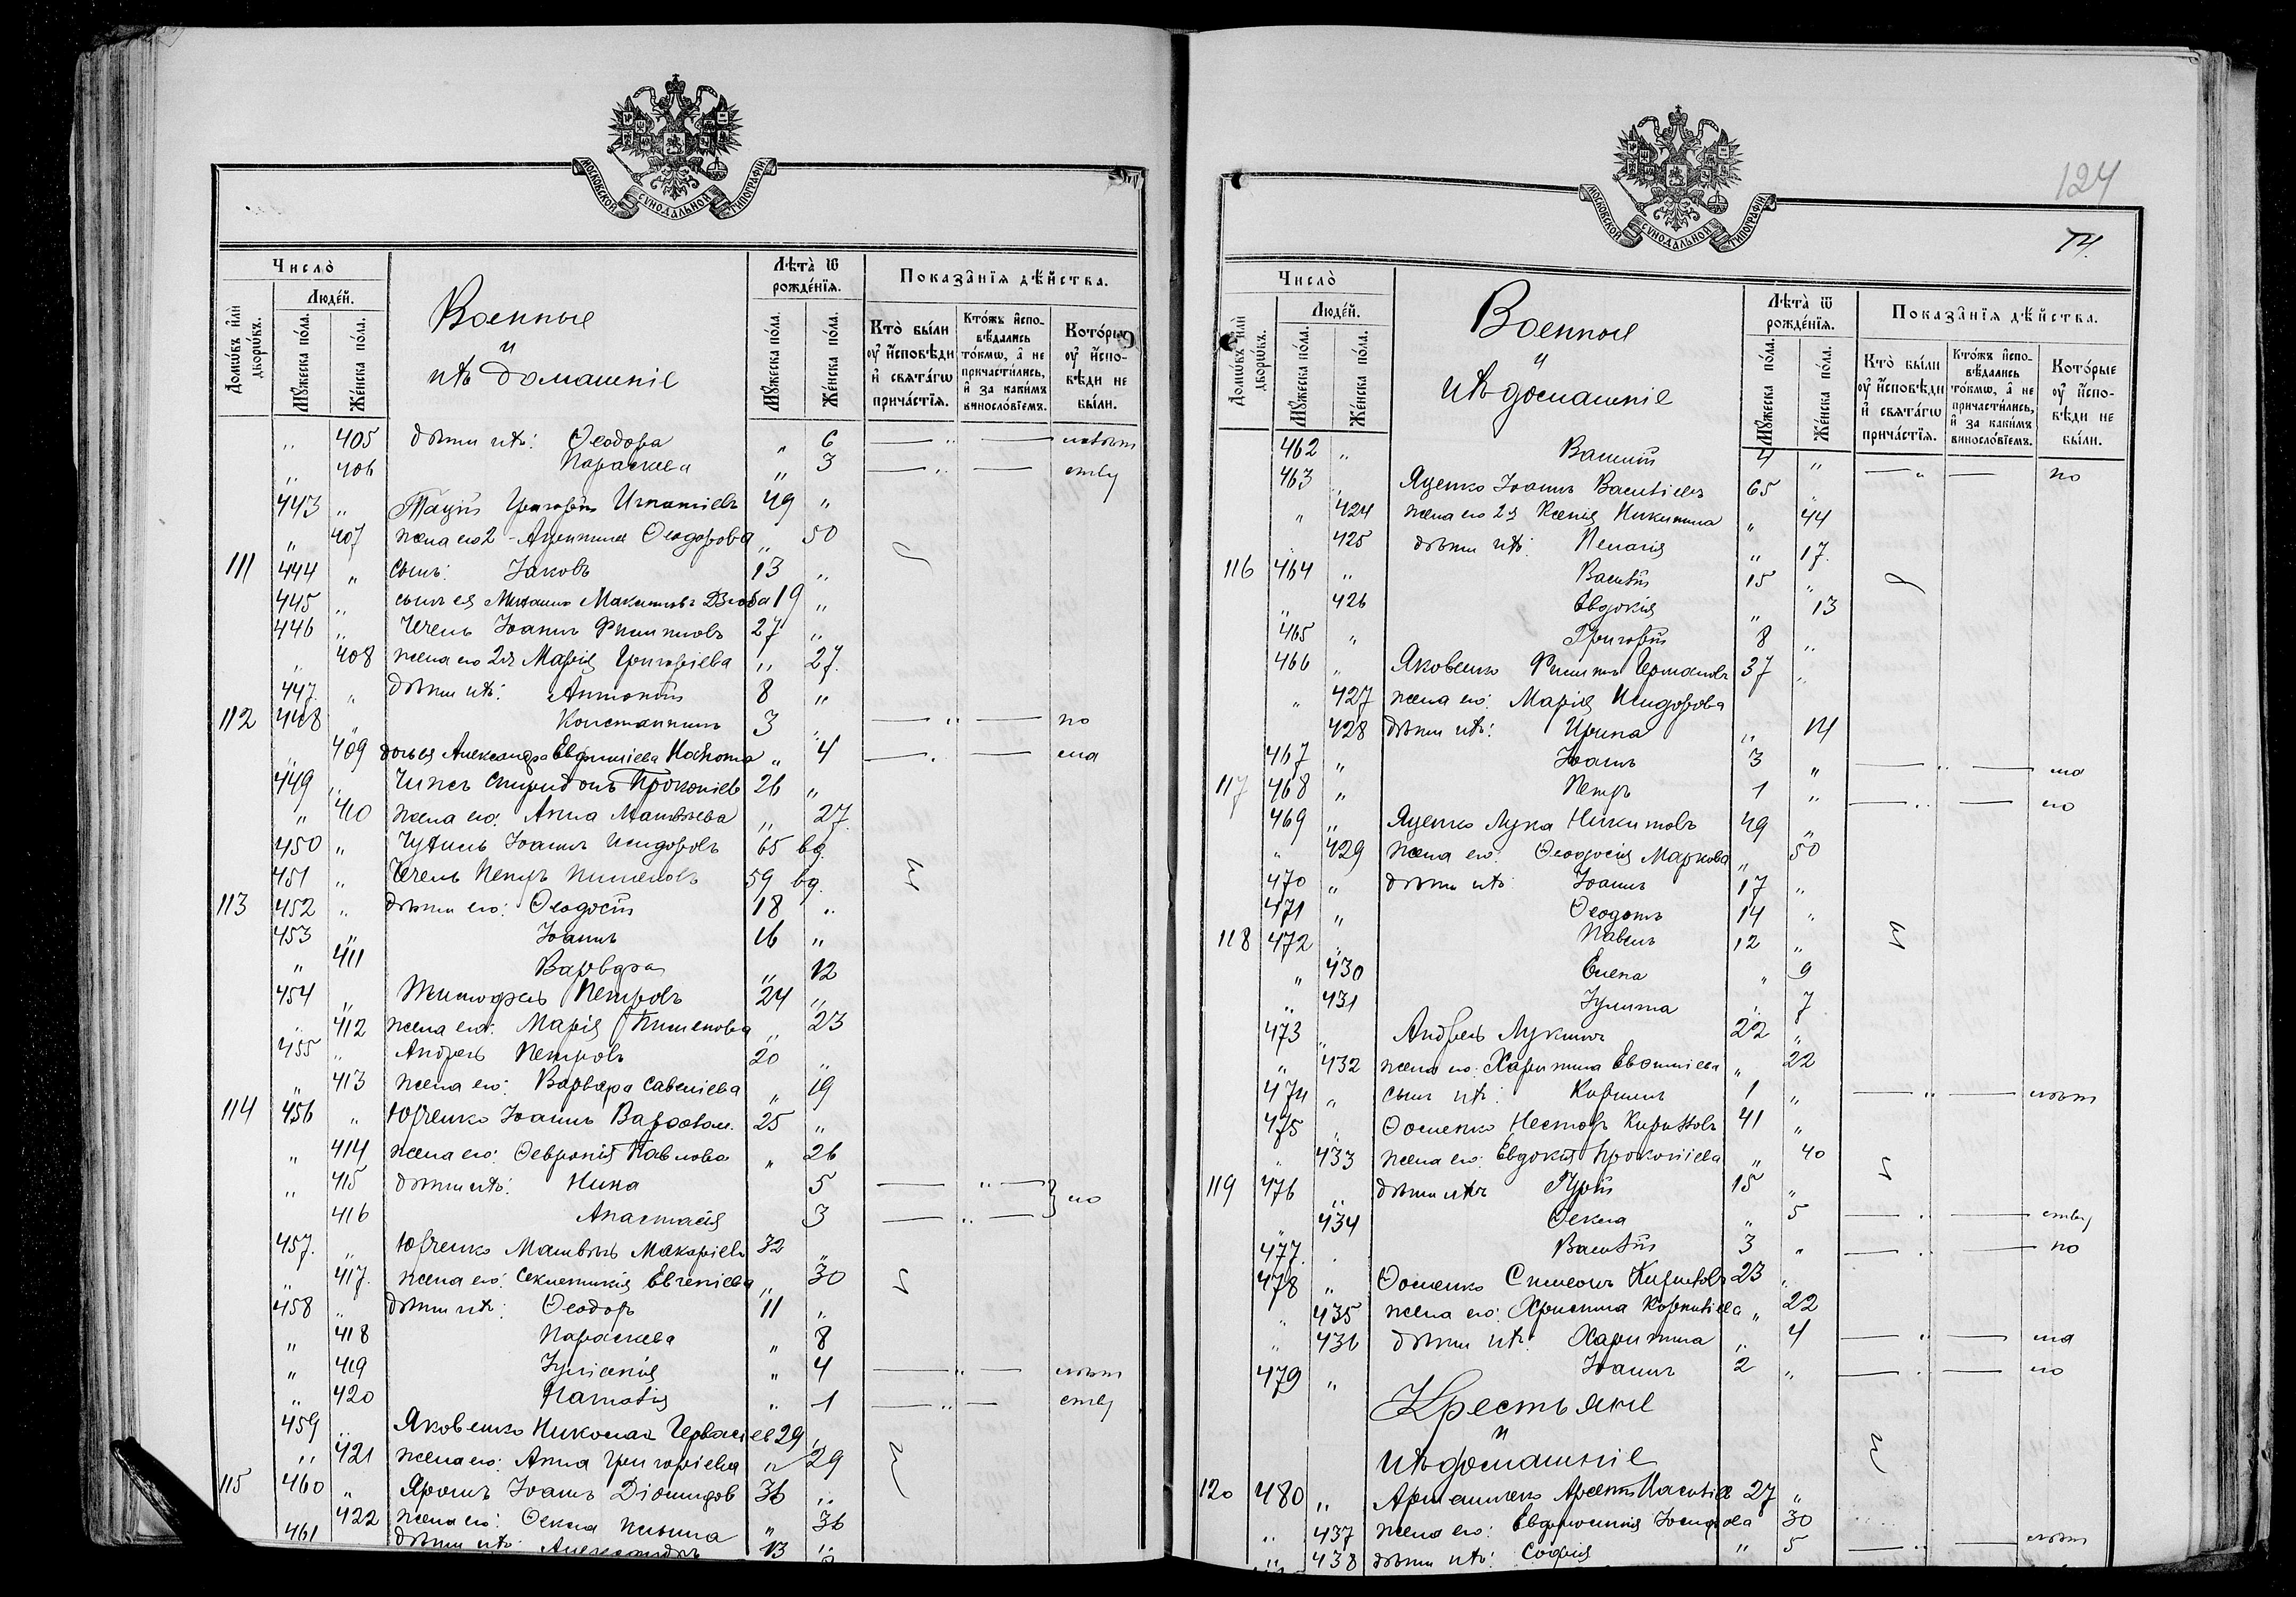 МОСКОВСКОЙ СѴНОДАЛЬНОЙ ТИПОГРАФІИ
Число̀
Лѣта̀ ѿ рожде́нїѧ.
Показа̑нїѧ дѣ́йства.
Домѡ́въ и҆лѝ дворѡ́въ.
Люде́й.
Мꙋ́жеска по́ла.
Же́нска по́ла.
Военные
и
ихъ домашніе
Мꙋ́жеска по́ла.
Же́нска по́ла.
Кто̀ бы́ли ᲂу҆ и҆сповѣ́ди и҆ свѧта́гѡ прича́стїѧ.
Кто́жъ и҆сповѣ́дались то́кмѡ, а҆ не причасти́лись, и҆ за каки́мъ винослѡ́вїемъ.
Кото́рые ᲂу҆ и҆сповѣ́ди не бы́ли.
„ 405 дѣти ихъ: Ѳеодора „ 6 „
„ 406 Параскева „ 3 „
443 „ Григорій Игнатіевъ 49 „
„ 407 жена его 2 Ѳеодорова „ 50
111 444 „ сынъ: Іаковъ 13 „
445 „ сынъ ея Михаилъ Максимовъ 19 „
446 „ Чечель Іоаннъ Филипповъ 27 „
„ 408 жена его 2я Марія Григоріева „ 27.
447. „ дѣти ихъ: Антоній 8 „
112 448 „ Константинъ 3 „ по
„ 409 дочь ея Александра Евфиміева „ 4 „
449 „ Спиридонъ Прокопіев 26 „
„ 410 жена его: Анна Матѳѣева „ 27.
450 „ Іоаннъ Исидоровъ 65 вд.
451 „ Чечель Петръ Пименовъ 59 вд.
113 452 „ дѣти его: Ѳеодосій 18 „
453 „ Іоаннъ 16 „
„ 411 Варвара „ 12
454 „ Тимофей Петровъ 24 „
„ 412 жена его: Марія Пименова „ 23
455 „ Андрей Петровъ 20 „
„ 413 жена его: Варвара Савеліева „ 19
114 456 „ Юрченко Іоаннъ Варѳолом. 25 „
„ 414 жена его: Ѳевронія Павлова „ 26
„ 415 дѣти ихъ: Нина 5 „
416 Анастасія 3 „
457. „ Юрченко Матвѣй Макаріевъ 32 „
„ 417. жена его: Секлетикія Евгеніева „ 30
458 „ дѣти ихъ: Ѳеодоръ 11 „
„ 418 Параскева „ 8
„ 419 Іуліанія „ 4 „
„ 420 Наталія „ 1 „
459 „ Яковенко Николай Гервасіев 29 „
„ 421 жена его: Анна Григоріева „ 29
115 460 „ Ярошъ Іоаннъ Діомидов 36 „
„ 422 жена его: Ѳекла „ 36
461 дѣти ихъ: Александръ 13 „
МОСКОВСКОЙ СѴНОДАЛЬНОЙ ТИПОГРАФІИ
124
74.
Число̀
Лѣта̀ ѿ рожде́нїѧ.
Показа̑нїѧ дѣ́йства.
Домѡ́въ и҆лѝ дворѡ́въ.
Люде́й.
Мꙋ́жеска по́ла.
Же́нска по́ла.
Военные
и
ихъ домашніе
Мꙋ́жеска по́ла.
Же́нска по́ла.
Кто̀ бы́ли ᲂу҆ и҆сповѣ́ди и҆ свѧта́гѡ прича́стїѧ.
Кто́жъ и҆сповѣ́дались то́кмѡ, а҆ не причасти́лись, и҆ за каки́мъ винослѡ́вїемъ.
Кото́рые ᲂу҆ и҆сповѣ́ди не бы́ли.
462 „ 4 „ „ по
463 „ Яценко Іоаннъ Василіевъ 65 „
„ 424 жена его 2я Ксенія Никитина „ 44
„ 425 дѣти ихъ: Пелагія „ 17.
116 464 „ Василій 15 „
„ 426 Евдокія „ 13
465 „ Григорій 8 „
466 „ Яковенко Филиппъ 37 „
„ 427 жена его: Марія Исидорова
428 дѣти ихъ: Ирина „ 14
467 „ Іоаннъ 3 „ „
117 468 „ Петръ 1 „ „
469 „ Яценко Лука Никитовъ 49 „
„ 429 жена его: Ѳеодосія Маркова „ 50
470 „ дѣти ихъ: Іоаннъ 17 „
471 „ Ѳеодотъ 14 „
118 472 „ Павелъ 12 „
„ 430 Елена „ 9
„ 431 Іулитта „ 7
473 „ Андрей Лукинъ 22 „
„ 432 жена его: Харитина Евѳиміева „ 22
474 „ сынъ ихъ: 1 „ „
475 „ Ѳоменко Несторъ Кирилловъ 41 „
„ 433 жена его: Евдокія Прокопіева „ 40
119 476 „ дѣти ихъ Гурій 15 „
„ 434 Ѳекла „ 5
477. Василій 3 „ по
478 „ Ѳоменко Симеонъ Кирилловъ 23 „
„ 435 жена его: Христина Корниліева „ 22
„ 436 дѣти ихъ: Харитина „ 4 „
479 „ Іоаннъ 2 „
Крестьяне
и
ихъ домашніе
120 480 „ Арсеній 27 „
„ 437 жена его: Евфросинія „ 30
„ 438 дѣти ихъ: Софія „ 5